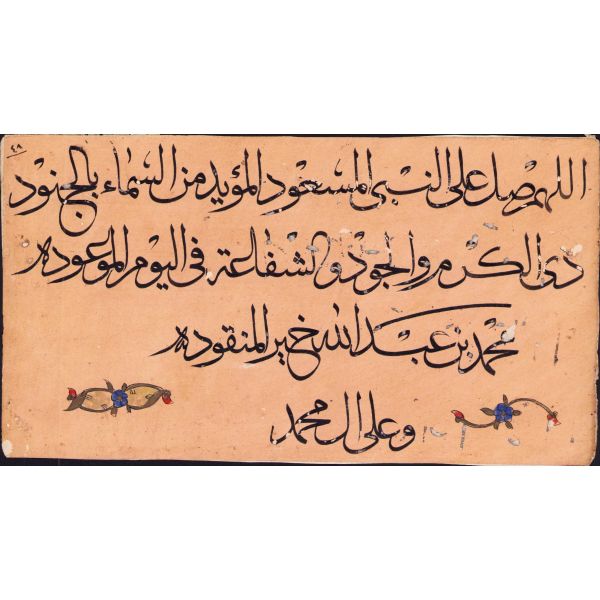 ٤٨
اللهم صل على النبي المسعود المؤيد من السماء بالجنود
ذي الكرم والجود والشفاعة في اليوم الموعود
محمد بن عبد الله خير المنقود
وعلى ال محمد